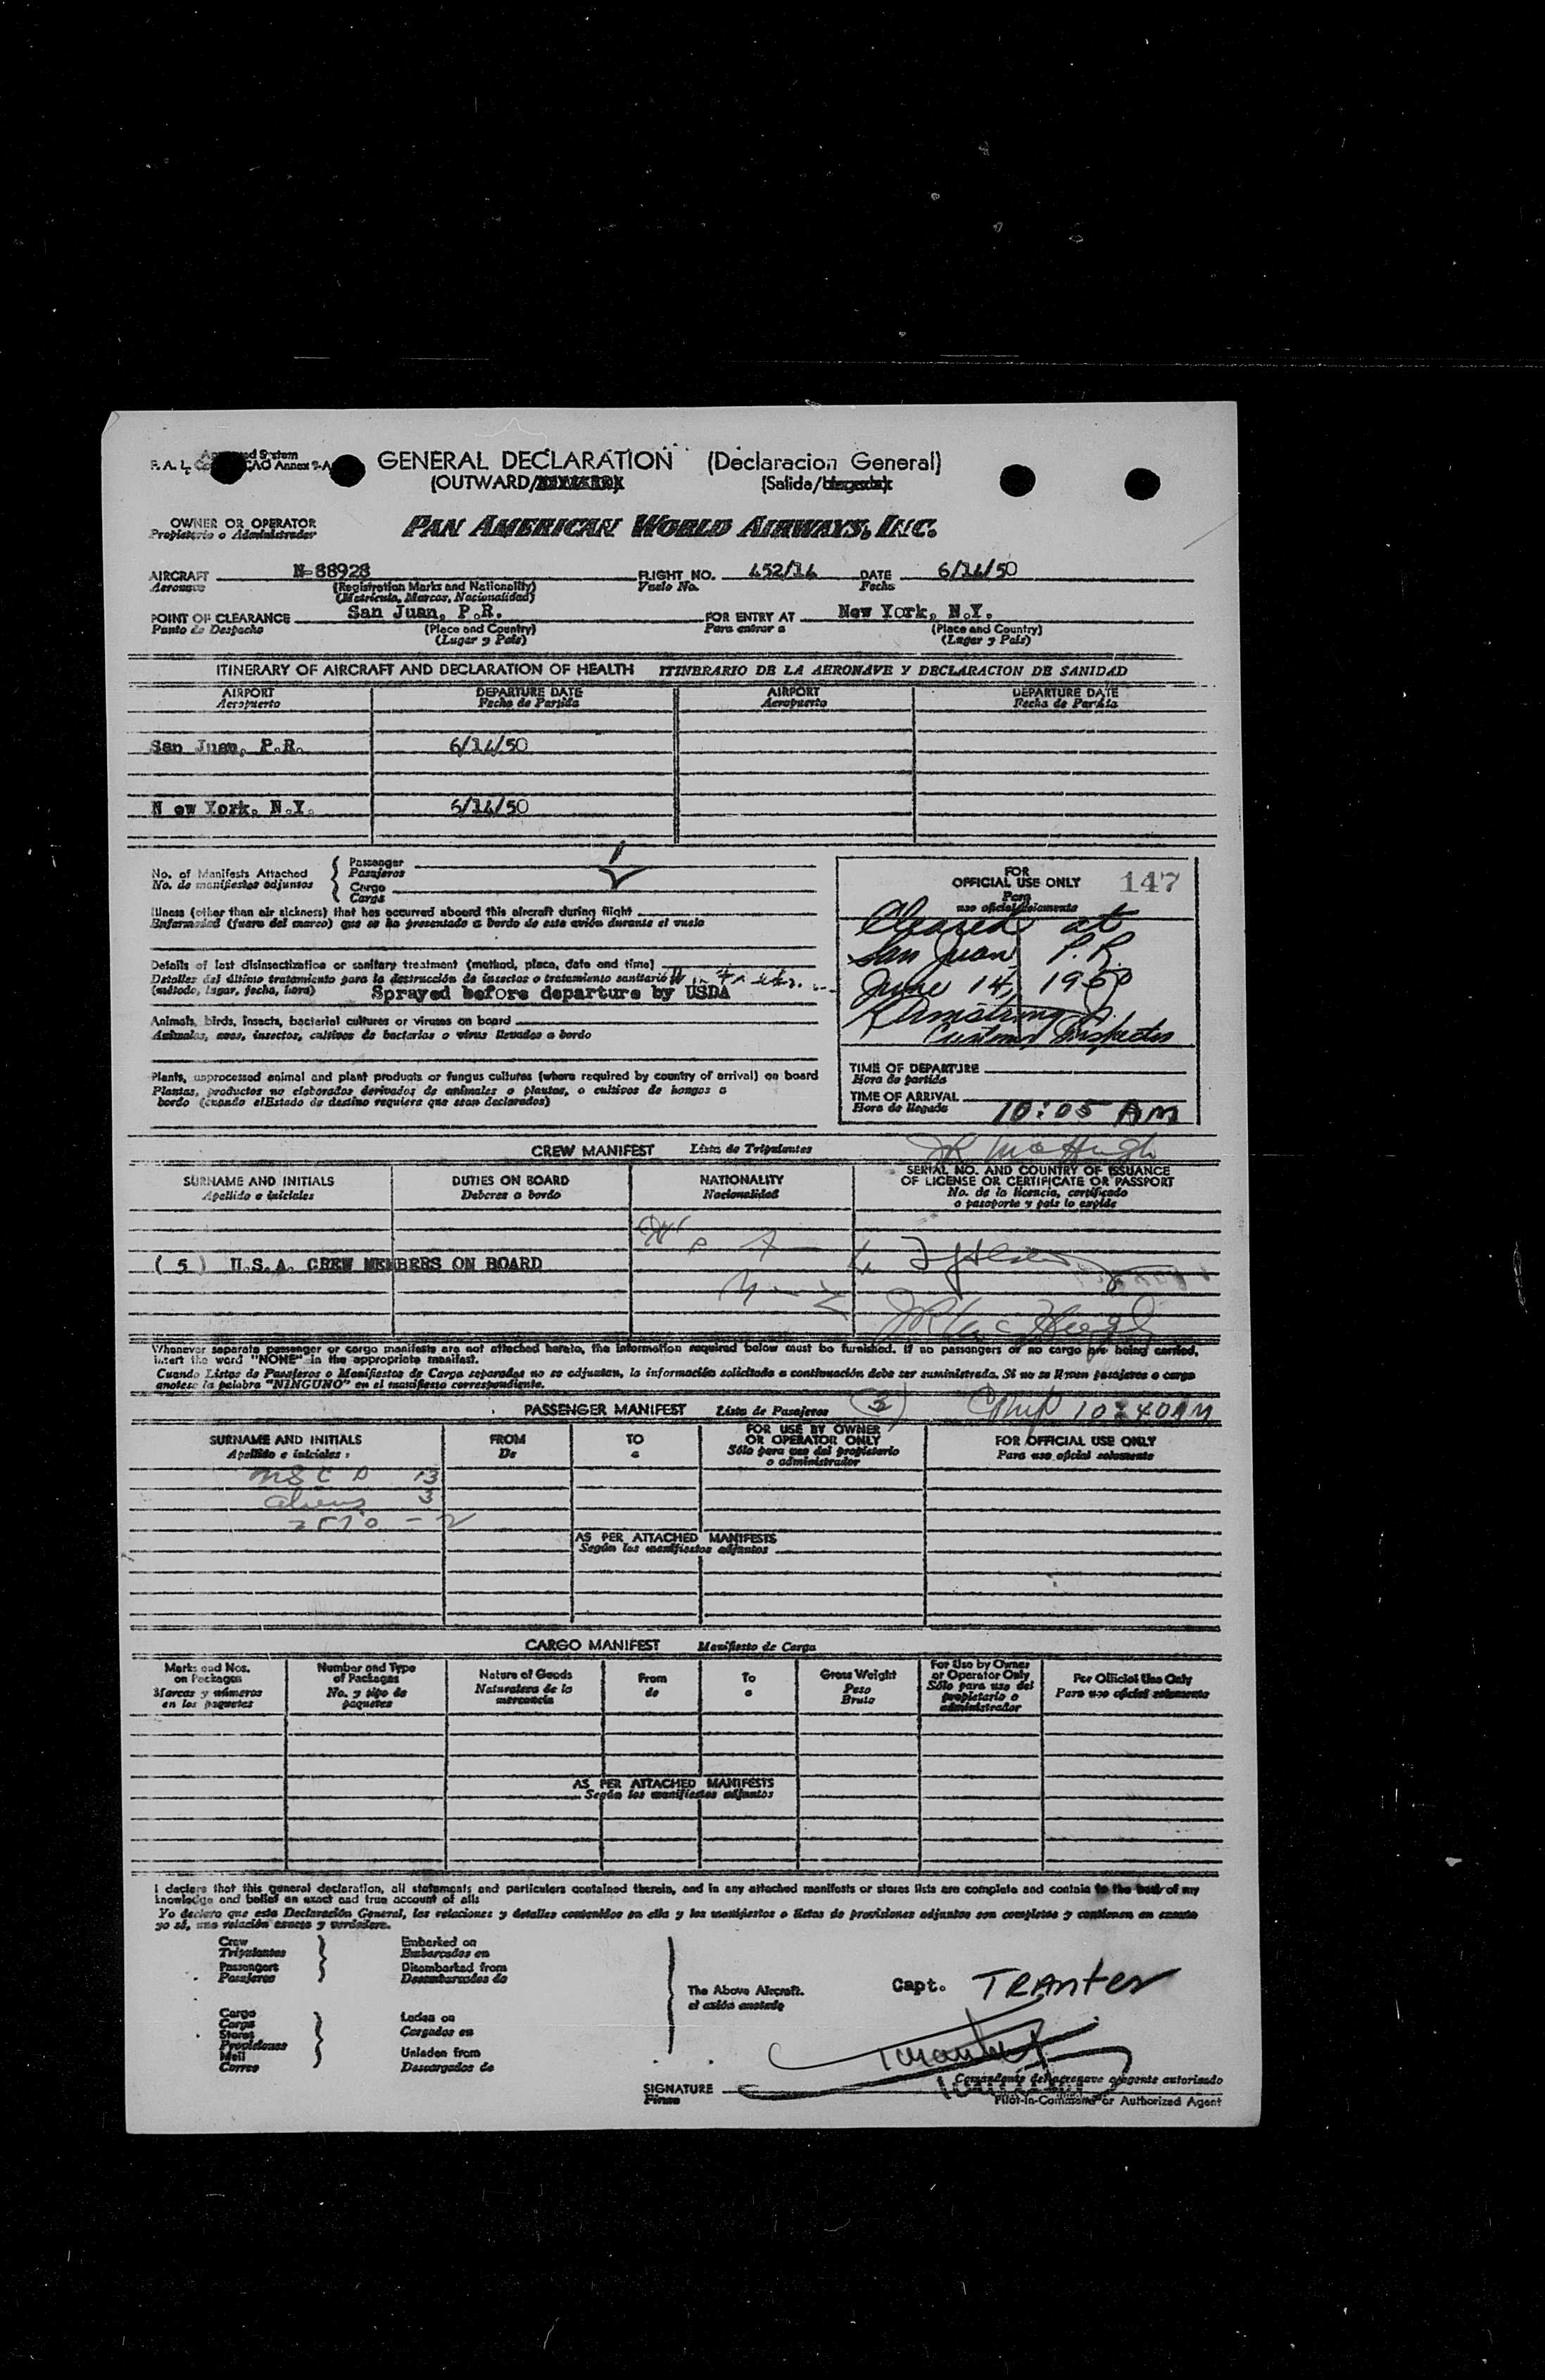 GENERAL DECLARATION (Declaracion General)
(OUTWARD/ (Salida/
OWNER OR OPERATOR PAN AMERICAN WORLD AIRWAYS, INC.
Propietario o Administrador
AIRCRAFT N-88928 FLIGHT NO. 452/14 DATE 6/14/50
Aeronave (Registration Marks and Nationality) Vuelo No. Fecha
(Matrícula, Marcas, Nacionalidad)
POINT OF CLEARANCE San Juan, P.R. FOR ENTRY AT New York, N.Y.
Punto de Despacho (Place and Country) Para entrar a (Place and Country)
(Lugar y País) (Lugar y País)
ITINERARY OF AIRCRAFT AND DECLARATION OF HEALTH ITINERARIO DE LA AERONAVE Y DECLARACION DE SANIDAD
AIRPORT DEPARTURE DATE AIRPORT DEPARTURE DATE
Aeropuerto Fecha de Partida Aeropuerto Fecha de Partida
San Juan, P.R. 6/14/50
N ew York, N.Y. 6/14/50
No. of Manifests Attached
No. de manifiestos adjuntos
Passenger
Pasajeros
Cargo
Carga
Illness (other than air sickness) that has occurred aboard this aircraft during flight
Enfermedad (fuera del mareo) que se ha presentado a bordo de este avión durante el vuelo
Details of last disinsectization or sanitary treatment (method, place, date and time)
Detalles del último tratamiento para la destrucción de insectos o tratamiento sanitario
(método, lugar, fecha, hora) Sprayed before departure by USDA
Animals, birds, insects, bacterial cultures or viruses on board
Animales, aves, insectos, cultivos de bacterias o virus llevados a bordo
Plants, unprocessed animal and plant products or fungus cultures (where required by country of arrival) on board
Plantas, productos no elaborados derivados de animales o plantas, o cultivos de hongos a
bordo (cuando el Estado de destino requiera que sean declarados)
FOR
OFFICIAL USE ONLY 147
Para
uso oficial solamente
Cleared at
San Juan, P.R.
June 14, 1950
Armstrong
Customs Inspector
TIME OF DEPARTURE
Hora de partida
TIME OF ARRIVAL
Hora de llegada 10:05 AM
CREW MANIFEST Lista de Tripulantes
SURNAME AND INITIALS DUTIES ON BOARD NATIONALITY SERIAL NO. AND COUNTRY OF ISSUANCE
OF LICENSE OR CERTIFICATE OR PASSPORT
Apellido e iniciales Deberes a bordo Nacionalidad No. de la licencia, certificado
o pasaporte y país lo expide
( 5 ) U.S.A. CREW MEMBERS ON BOARD
Whenever separate passenger or cargo manifests are not attached hereto, the information required below must be furnished. If no passengers or no cargo are being carried,
insert the word "NONE" in the appropriate manifest.
Cuando Listas de Pasajeros o Manifiestos de Carga separados no se adjuntan, la información solicitada a continuación debe ser suministrada. Si no se llevan pasajeros o carga
anótese la palabra "NINGUNO" en el manifiesto correspondiente.
PASSENGER MANIFEST Lista de Pasajeros (3) 10:40AM
SURNAME AND INITIALS FROM TO FOR USE BY OWNER
OR OPERATOR ONLY FOR OFFICIAL USE ONLY
Apellido e iniciales De a Sólo para uso del propietario
o administrador Para uso oficial solamente
13
aliens 3
AS PER ATTACHED MANIFESTS
Según los manifiestos adjuntos
CARGO MANIFEST Manifiesto de Carga
Marks and Nos.
on Packages
Marcas y números
en los paquetes
Number and Type
of Packages
No. y tipo de
paquetes
Nature of Goods
Naturaleza de la
mercancía
From
de
To
a
Gross Weight
Peso
Bruto
For Use by Owner
or Operator Only
Sólo para uso del
propietario o
administrador
For Official Use Only
Para uso oficial solamente
AS PER ATTACHED MANIFESTS
Según los manifiestos adjuntos
I declare that this general declaration, all statements and particulars contained therein, and in any attached manifests or stores lists are complete and contain to the best of my
knowledge and belief an exact and true account of all:
Yo declaro que esta Declaración General, las relaciones y detalles contenidos en ella y los manifiestos o listas de provisiones adjuntos son completos y contienen en cuanto
yo sé, una relación exacta y verdadera.
Crew
Tripulantes
Passengers
Pasajeros
Embarked on
Embarcados en
Disembarked from
Desembarcados de
Cargo
Carga
Stores
Provisiones
Mail
Correo
Laden on
Cargados en
Unladen from
Descargados de
The Above Aircraft.
el avión anotado
Capt. TRANter
SIGNATURE
Firma
Comandante del aeronave o agente autorizado
Pilot-in-Command or Authorized Agent